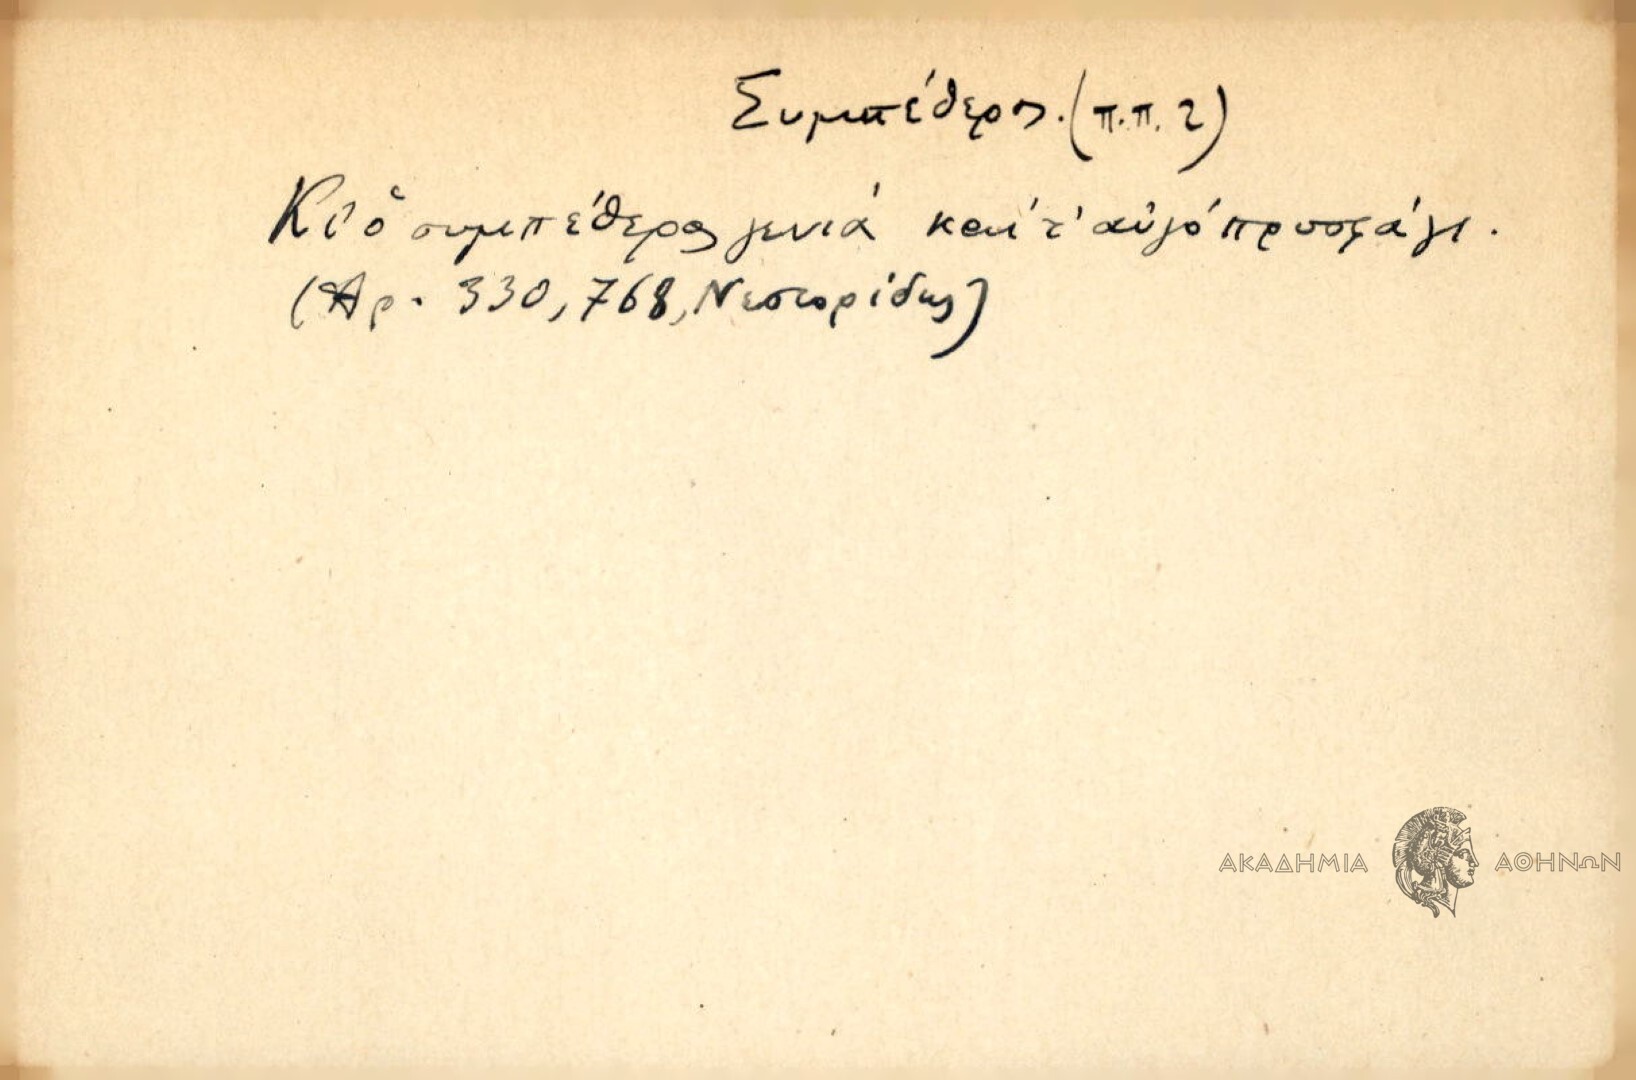 Συμπέθερος. (π.π. 2)
Κι ὁ συμπέθερος γενιά και τ' αὐγό προσφάγι.
(Αρ. 330, 768, Νεστορίδης)
ΑΚΑΔΗΜΙΑ ΑΘΗΝΩΝ